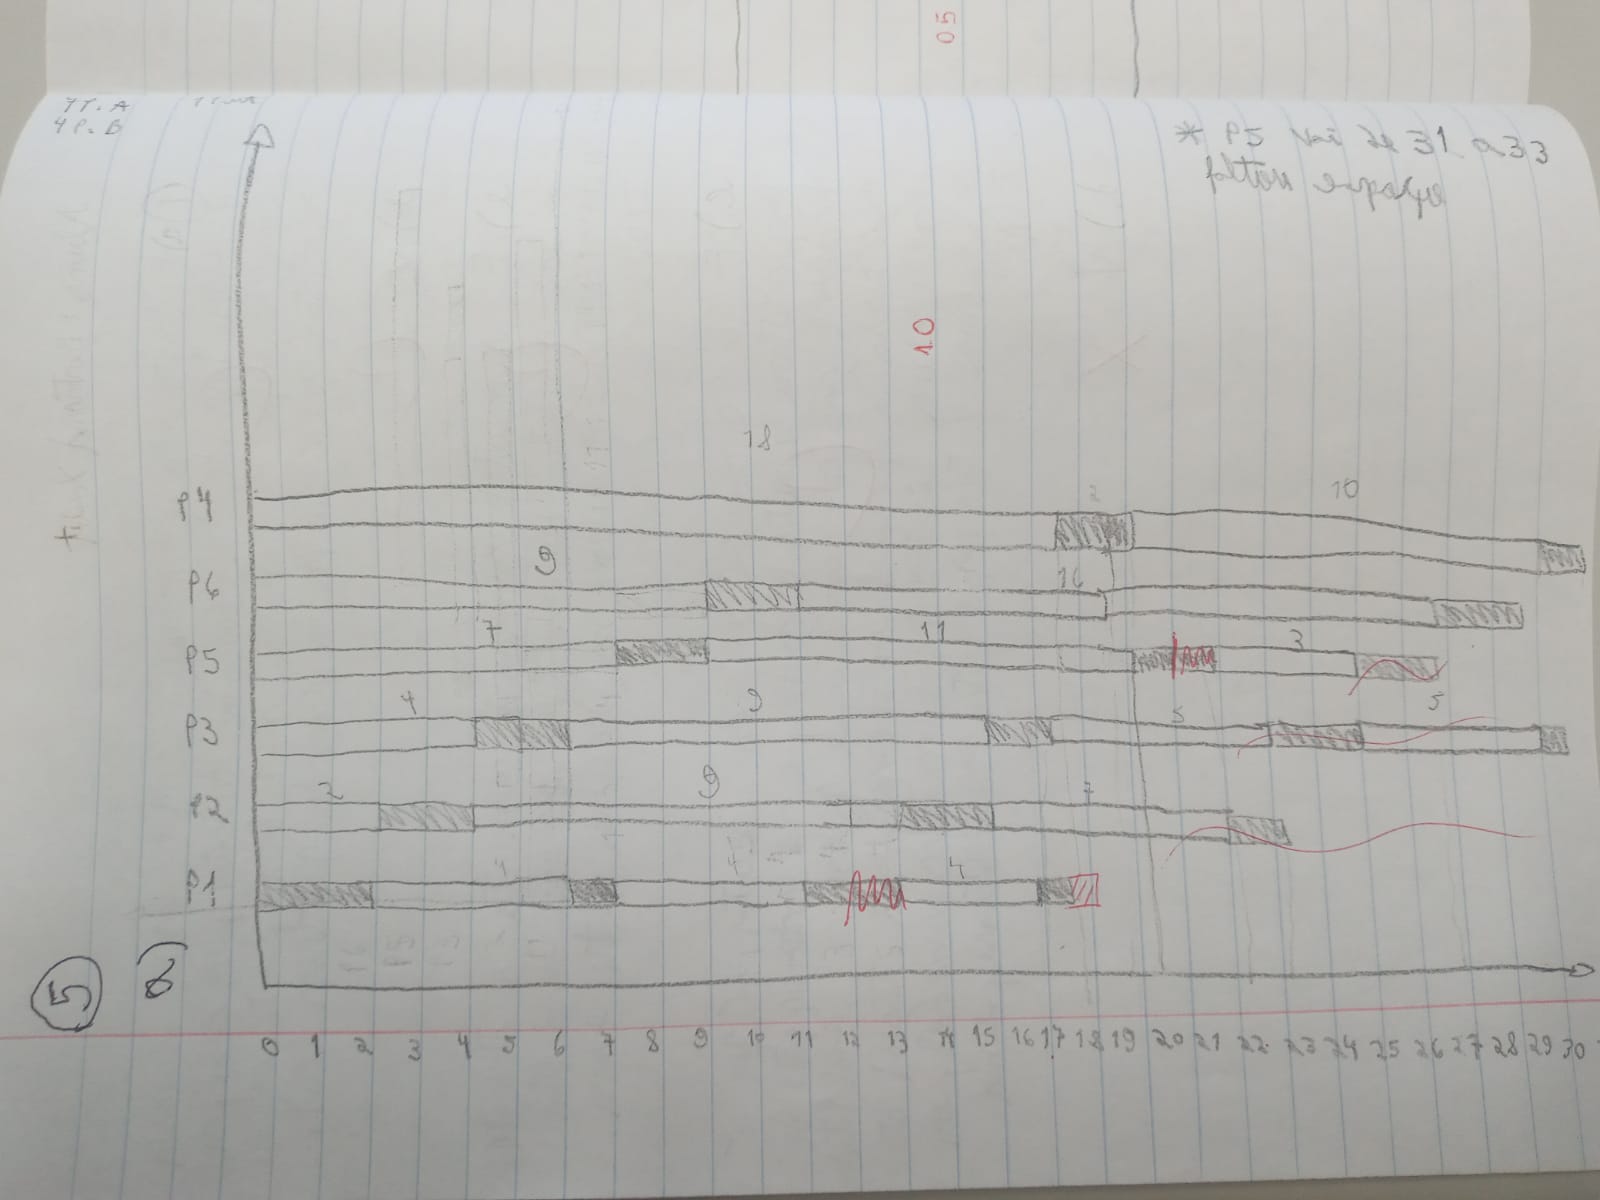 05
4P. B
* P5 vai de 31 a 33
faltou espaço
1.0
18
2
10
P4
9
16
P6
7
11
3
P5
4
9
5
5
P3
2
9
7
P2
4
4
4
P1
5
a)
0 1 2 3 4 5 6 7 8 9 10 11 12 13 14 15 16 17 18 19 20 21 22 23 24 25 26 27 28 29 30